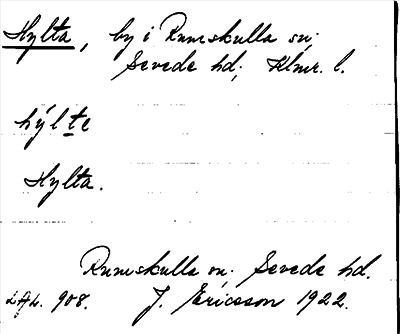 Hylta, by i Rumskulla sn;
Sevede hd; Klmr. l.
hýlte
Hylta.
Rumskulla sn. Sevede hd.
908. J. Ericsson 1922.